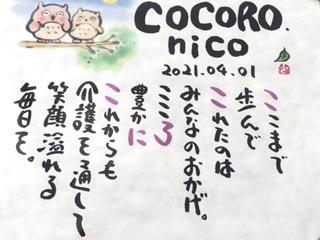 COCORO.
nico
2021.04.01
ここまで
歩んで
これたのは
みんなのおかげ。
こころ
豊かに
これからも
介護を通して
笑顔溢れる
毎日を。